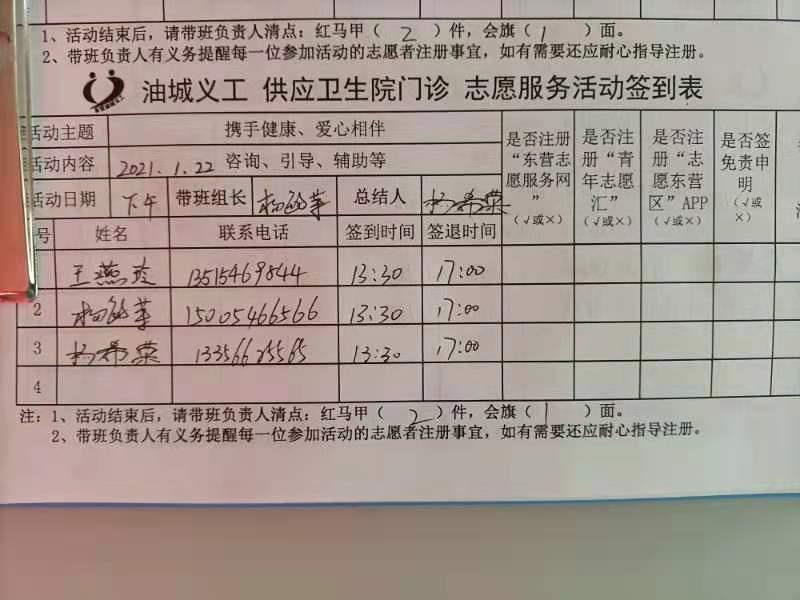 1、活动结束后，请带班负责人清点：红马甲（ 2 ）件，会旗（ 1 ）面。
2、带班负责人有义务提醒每一位参加活动的志愿者注册事宜，如有需要还应耐心指导注册。
油城义工 供应卫生院门诊 志愿服务活动签到表
活动主题 携手健康、爱心相伴 是否注册“东营志愿服务网”（√或×） 是否注册“青年志愿汇”（√或×） 是否注册“志愿东营区”APP（√或×） 是否签免责申明（√或×）
活动内容 2021.1.22 咨询、引导、辅助等
活动日期 下午 带班组长 总结人
号 姓名 联系电话 签到时间 签退时间
王燕 13515469844 13:30 17:00
2 15005466566 13:30 17:00
3 13356625565 13:30 17:00
4
注：1、活动结束后，请带班负责人清点：红马甲（ 2 ）件，会旗（ 1 ）面。
2、带班负责人有义务提醒每一位参加活动的志愿者注册事宜，如有需要还应耐心指导注册。